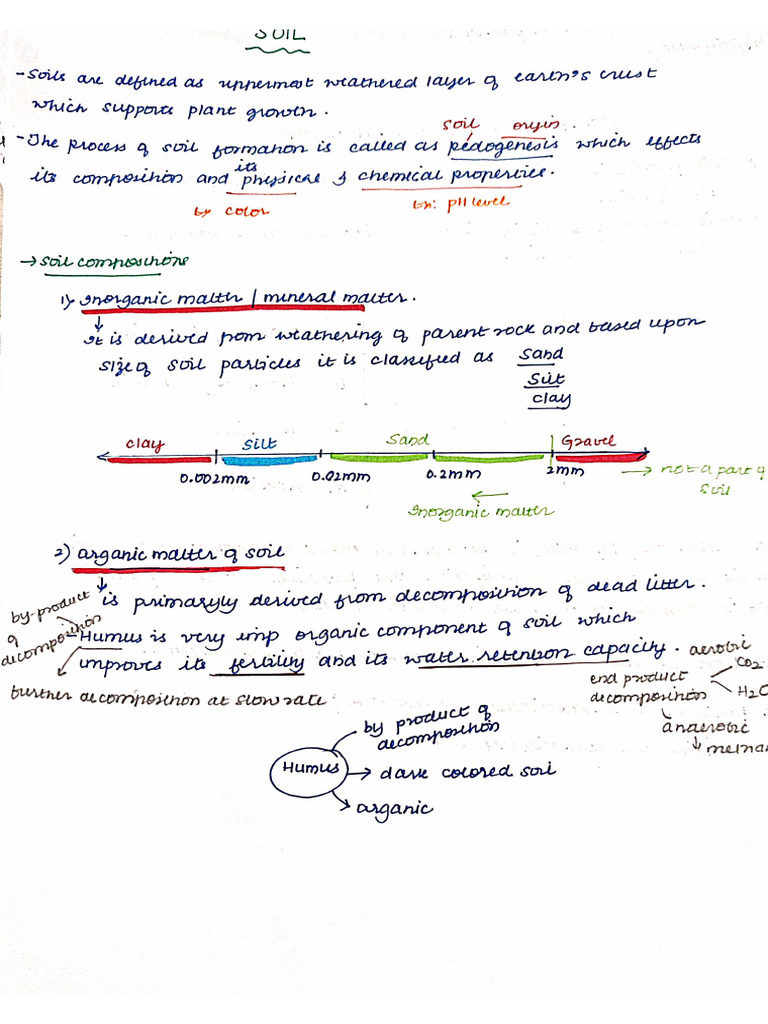 SOIL
- Soils are defined as uppermost weathered layer of earth's crust
which supports plant growth.
soil origin.
- The process of soil formation is called as pedogenesis which effects
its composition and its physical & chemical properties.
Ex color
Ex: pH level
→ Soil compositions
1) Inorganic matter / mineral matter.
It is derived from weathering of parent rock and based upon
size of soil particles it is classified as Sand
Silt
clay
clay Silt Sand Gravel
0.002mm 0.02mm 0.2mm 2mm → not a part of
soil
← Inorganic matter
2) organic matter of soil
is primaryly derived from decomposition of dead litter.
by-product
of
decomposition
- Humus is very imp organic component of soil which
improves its fertility and its water retention capacity.
further decomposition at slow rate
end product
decomposition
aerobic
CO2
H2O
anaerobic
Humus
by product of
decomposition
→ dark colored soil
organic